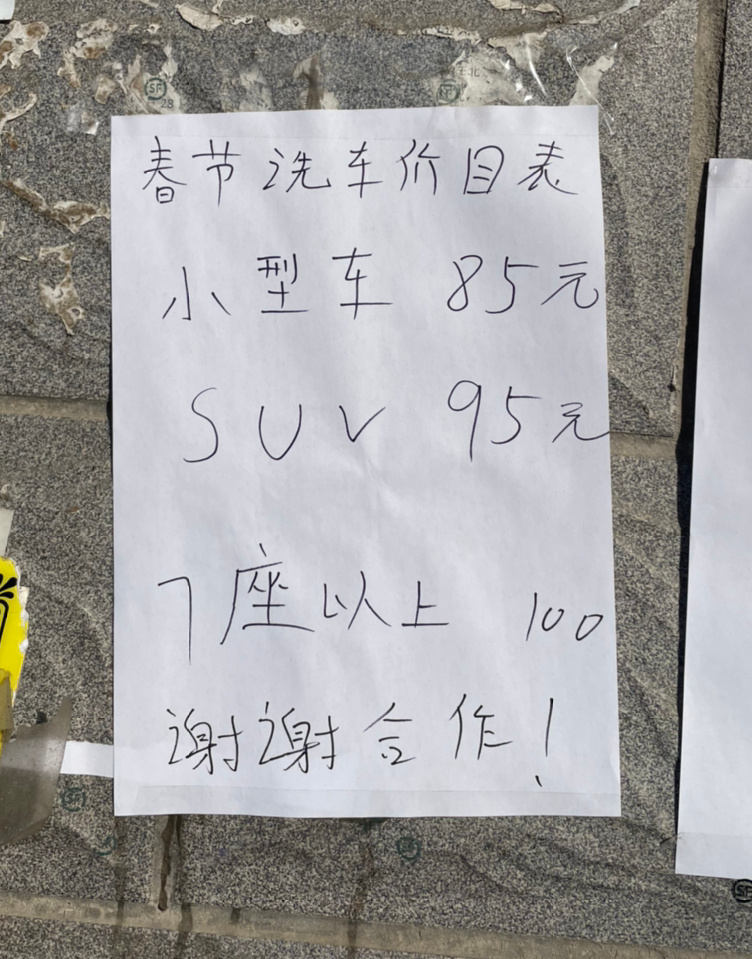 春节洗车价目表
小型车 85元
SUV 95元
7座以上 100
谢谢合作!